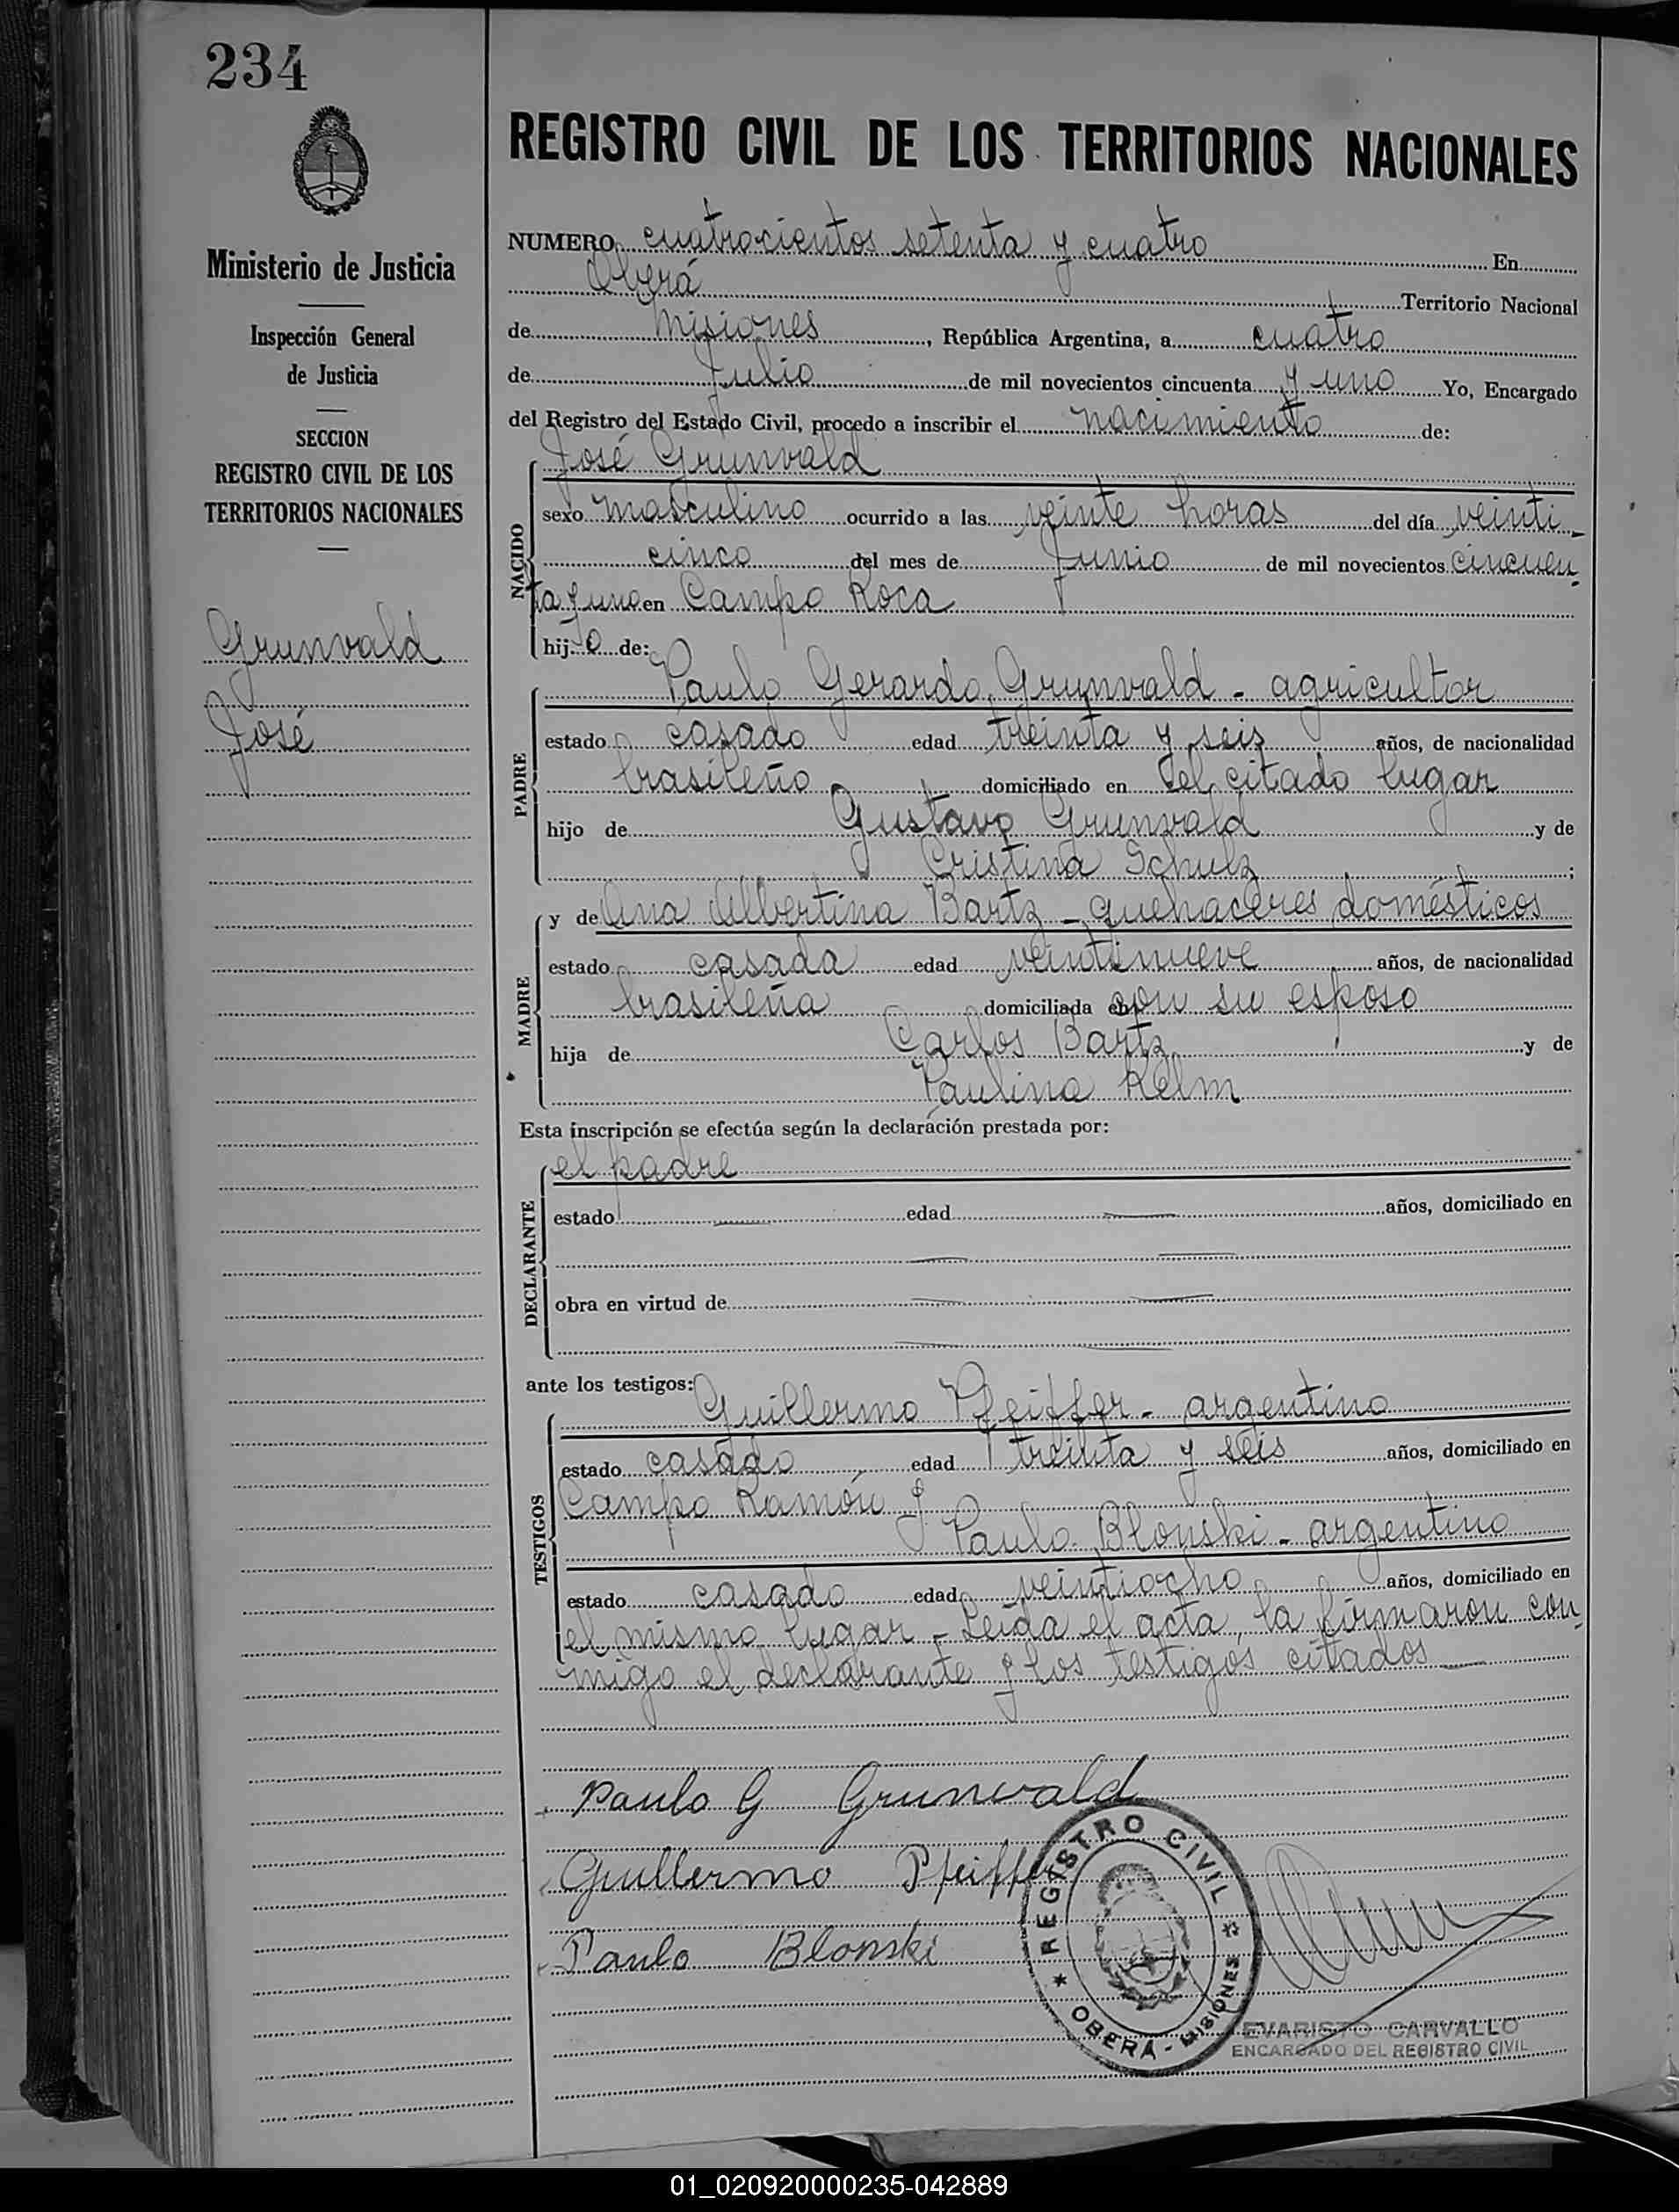 234
Ministerio de Justicia
Inspección General
de Justicia
SECCION
REGISTRO CIVIL DE LOS
TERRITORIOS NACIONALES
Grunvald
José
REGISTRO CIVIL DE LOS TERRITORIOS NACIONALES
NUMERO cuatrocientos setenta y cuatro En
Oberá Territorio Nacional
de Misiones, República Argentina, a cuatro
de Julio de mil novecientos cincuenta y uno Yo, Encargado
del Registro del Estado Civil, procedo a inscribir el nacimiento de:
NACIDO
José Grunvald
sexo masculino ocurrido a las veinte horas del día veinti-
cinco del mes de Junio de mil novecientos cincuen-
ta y uno en Campo Roca
hijo de:
PADRE
Paulo Gerardo Grunvald - agricultor
estado casado edad treinta y seis años, de nacionalidad
brasileño domiciliado en el citado lugar
hijo de Gustavo Grunvald y de
Cristina Schulz;
MADRE
y de Ana Albertina Bartz - quehaceres domésticos
estado casada edad veintinueve años, de nacionalidad
brasileña domiciliada con su esposo
hija de Carlos Bartz y de
Paulina Relm
Esta inscripción se efectúa según la declaración prestada por:
DECLARANTE
el padre
estado edad años, domiciliado en
obra en virtud de
ante los testigos:
TESTIGOS
Guillermo Pfeiffer - argentino
estado casado edad treinta y seis años, domiciliado en
Campo Ramón y
Paulo Blonski - argentino
estado casado edad veintiocho años, domiciliado en
el mismo lugar - Leída el acta, la firmaron con-
migo el declarante y los testigos citados
Paulo G Grunvald
Guillermo Pfeiffer
Paulo Blonski
REGISTRO CIVIL
OBERA - MISIONES
EVARISTO CARVALLO
ENCARGADO DEL REGISTRO CIVIL
01_020920000235-042889